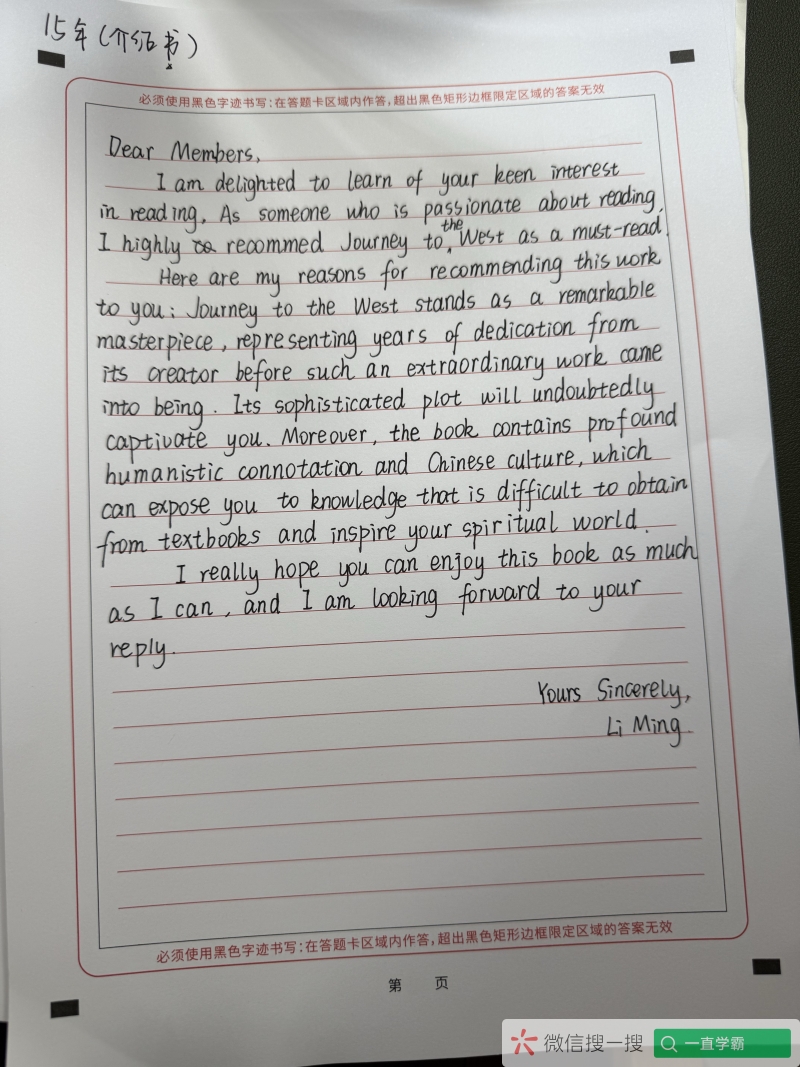 15年(介绍书)
必须使用黑色字迹书写:在答题卡区域内作答,超出黑色矩形边框限定区域的答案无效
Dear Members,
I am delighted to learn of your keen interest
in reading. As someone who is passionate about reading,
I highly recommed Journey to the West as a must-read.
Here are my reasons for recommending this work
to you: Journey to the West stands as a remarkable
masterpiece, representing years of dedication from
its creator before such an extraordinary work came
into being. Its sophisticated plot will undoubtedly
captivate you. Moreover, the book contains profound
humanistic connotation and Chinese culture, which
can expose you to knowledge that is difficult to obtain
from textbooks and inspire your spiritual world.
I really hope you can enjoy this book as much
as I can, and I am looking forward to your
reply.
Yours Sincerely,
Li Ming
必须使用黑色字迹书写:在答题卡区域内作答,超出黑色矩形边框限定区域的答案无效
第 页
微信搜一搜 一直学霸